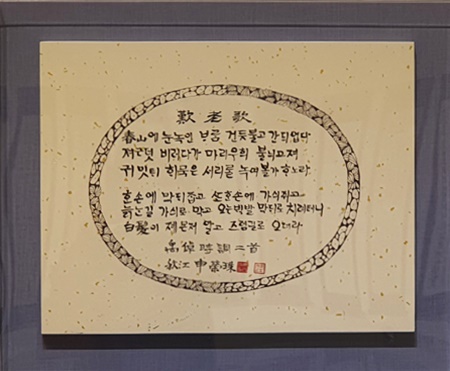 歎老歌
春山에 눈녹인 바람 건듯불고 간듸업다
저근덧 비러다가 마리우희 불니고져
귀밋틔 ᄒᆡ묵은 서리를 녹여볼가 ᄒᆞ노라
ᄒᆞᆫ손에 막ᄃᆡ잡고 ᄯᅩᄒᆞᆫ손에 가싀쥐고
늙는길 가싀로 막고 오는백발 막ᄃᆡ로 치려터니
白髮이 제몬져 알고 즈럼길로 오더라
禹倬 時調 二首
秋江 申榮珠